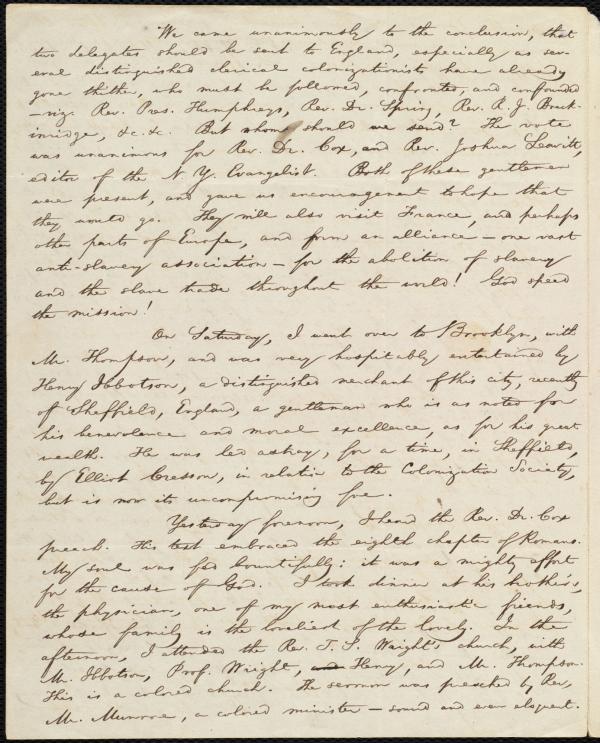 We came unanimously to the conclusion, that
two delegates should be sent to England, especially as sev-
eral distinguished clerical colonizationists have already
gone thither, who must be followed, confronted, and confounded
—viz. Rev. Pres. Humphreys, Rev. Dr. Spring, Rev. R. J. Breck-
inridge, &c. &c. But whom should we send? The vote
was unanimous for Rev. Dr. Cox, and Rev. Joshua Leavitt,
editor of the N. Y. Evangelist. Both of these gentlemen
were present, and gave us encouragement to hope that
they would go. They will also visit France, and perhaps
other parts of Europe, and form an alliance — one vast
anti-slavery association — for the abolition of slavery
and the slave trade throughout the world! God speed
the mission!
On Saturday, I went over to Brooklyn, with
Mr. Thompson, and was very hospitably entertained by
Henry Ibbotson, a distinguished merchant of this city, recently
of Sheffield, England, a gentleman who is as noted for
his benevolence and moral excellence, as for his great
wealth. He was led astray, for a time, in Sheffield,
by Elliot Cresson, in relation to the Colonization Society,
but is now its uncompromising foe.
Yesterday forenoon, I heard the Rev. Dr. Cox
preach. His text embraced the eighth chapter of Romans.
My soul was fed bountifully: it was a mighty effort
for the cause of God. I took dinner at his brother's,
the physician, one of my most enthusiastic friends,
whose family is the loveliest of the lovely. In the
afternoon, I attended the Rev. T. S. Wright's church, with
Mr. Ibbotson, Prof. Wright, and Henry, and Mr. Thompson.
This is a colored church. The sermon was preached by Rev.
Mr. Munroe, a colored minister — sound and even eloquent.